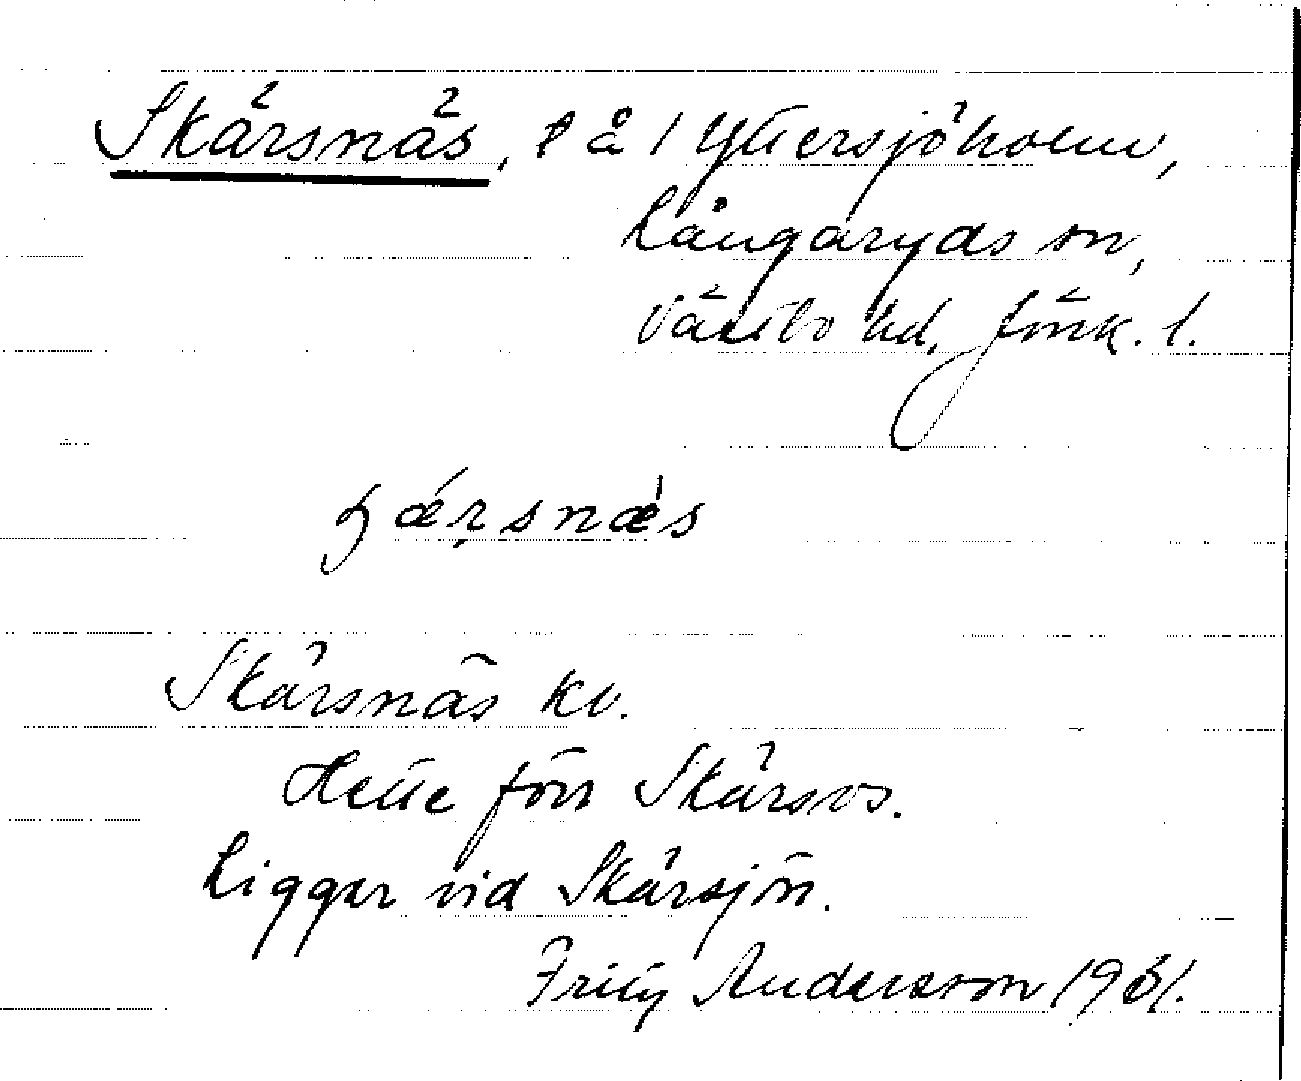 Skärsnäs, l å 1 Yttersjöholm,
Långaryds sn,
Västbo hd, Jönk. l.
ʂǽṛsnæ̀s
Skärsnäs kv.
Hette förr Skärsos.
Ligger vid Skärsjön.
Frity Andersson 1961.